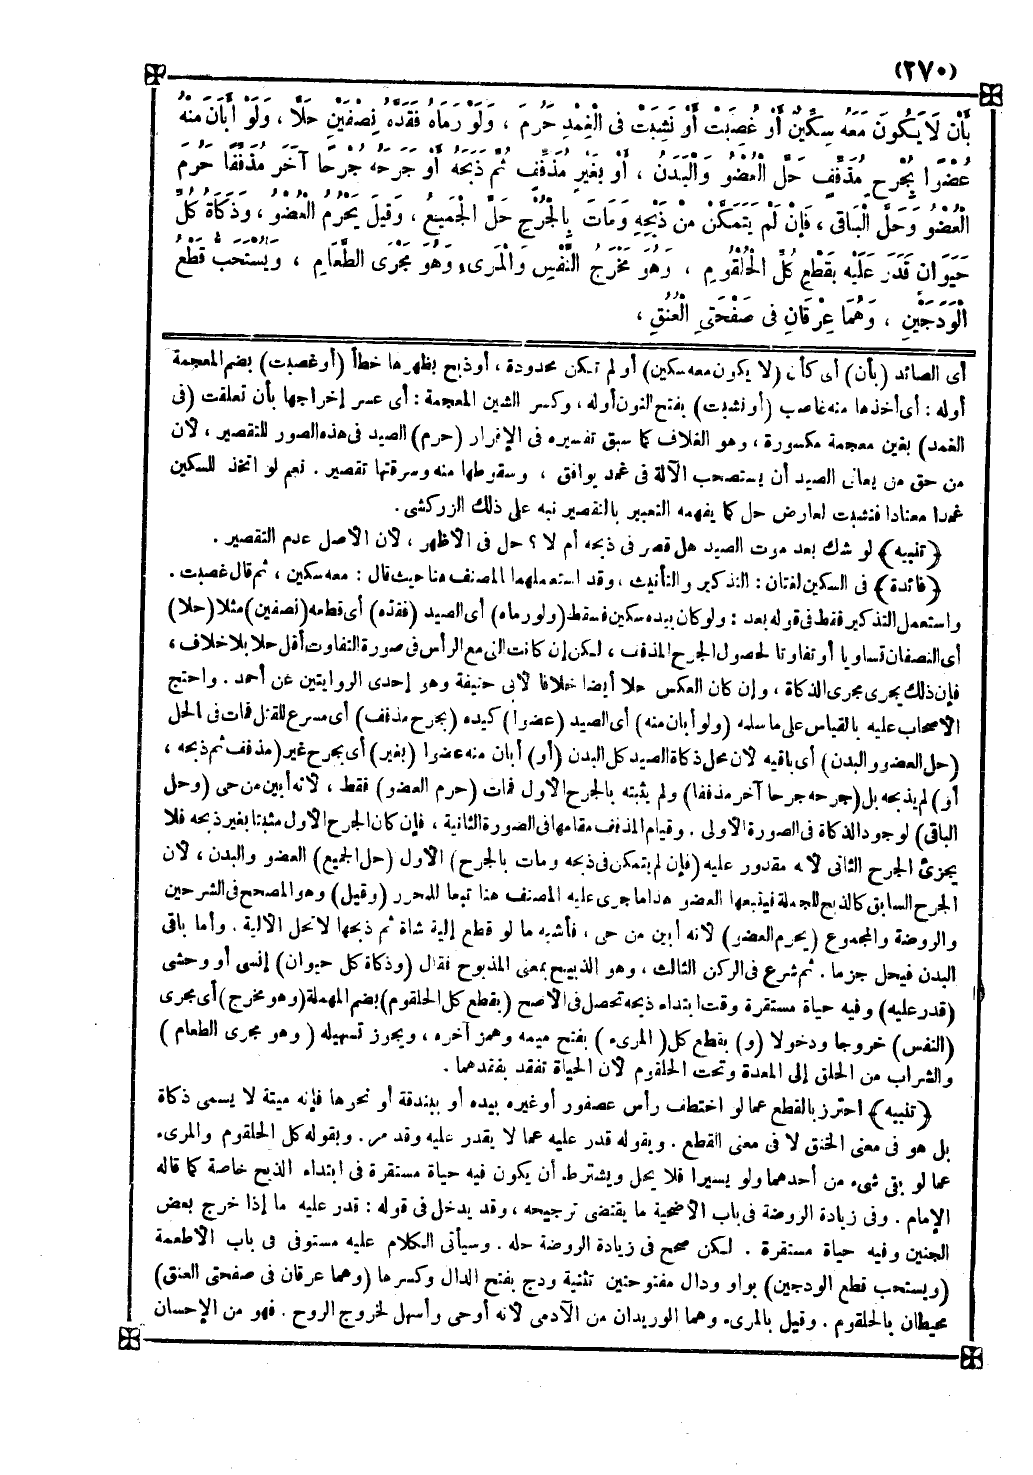 (٢٧٠)
بِأَنْ لَا يَكُونَ مَعَهُ سِكِّينٌ أَوْ غُصِبَتْ أَوْ نَشِبَتْ فِى الْغِمْدِ حَرُمَ ، وَلَوْ رَمَاهُ فَقَدَّهُ نِصْفَيْنِ حَلَّا ، وَلَوْ أَبَانَ مِنْهُ
عُضْوًا بِجُرْحٍ مُذَفِّفٍ حَلَّ الْعُضْوُ وَالْبَدَنُ ، أَوْ بِغَيْرِ مُذَفِّفٍ ثُمَّ ذَبَحَهُ أَوْ جَرَحَهُ جُرْحًا آخَرَ مُذَفِّفًا حَرُمَ
الْعُضْوُ وَحَلَّ الْبَاقِى ، فَإِنْ لَمْ يَتَمَكَّنْ مِنْ ذَبْحِهِ وَمَاتَ بِالْجُرْحِ حَلَّ الْجَمِيعُ ، وَقِيلَ يَحْرُمُ الْعُضْوُ ، وَذَكَاةُ كُلِّ
حَيَوَانٍ قَدَرَ عَلَيْهِ بِقَطْعِ كُلِّ الْحُلْقُومِ ، وَهُوَ مَخْرَجُ النَّفَسِ وَالْمَرِىءِ وَهُوَ مَجْرَى الطَّعَامِ ، وَيُسْتَحَبُّ قَطْعُ
الْوَدَجَيْنِ ، وَهُمَا عِرْقَانِ فِى صَفْحَتَىِ الْعُنُقِ ،
أى الصائد (بأن) أى كأن (لا يكون معه سكين) أو لم تكن محدودة ، أو ذبح بظهرها خطأ (أو غصبت) بضم المعجمة
أوله : أى أخذها منه غاصب (أو نشبت) بفتح النون أوله ، وكسر الشين المعجمة : أى عسر إخراجها بأن تعلقت (فى
الغمد) بغين معجمة مكسورة ، وهو الغلاف كما سبق تفسيره فى الإقرار (حرم) الصيد فى هذه الصور للتقصير ، لأن
من حق من يعانى الصيد أن يستصحب الآلة فى غمد يوافق ، وسقوطها منه وسرقتها تقصير . نعم لو اتخذ للسكين
غمدا معتادا فنشبت لعارض حل كما يفهمه التعبير بالتقصير نبه على ذلك الزركشى.
﴿تنبيه﴾ لو شك بعد موت الصيد هل قصر فى ذبحه أم لا ؟ حل فى الأظهر ، لأن الأصل عدم التقصير .
﴿فائدة﴾ فى السكين لغتان : التذكير والتأنيث ، وقد استعملهما المصنف هنا حيث قال : معه سكين ، ثم قال غصبت .
واستعمل التذكير فقط فى قوله بعد : ولو كان بيده سكين فسقط (ولو رماه) أى الصيد (فقده) أى قطعه (نصفين) مثلا (حلا)
أى النصفان تساويا أو تفاوتا لحصول الجرح المذفف ، لكن إن كانت التى مع الرأس فى صورة التفاوت أقل حلا بلا خلاف ،
فإن ذلك يجرى مجرى الذكاة ، وإن كان العكس حلا أيضا خلافا لأبى حنيفة وهو إحدى الروايتين عن أحمد . واحتج
الأصحاب عليه بالقياس على ما سلمه (ولو أبان منه) أى الصيد (عضوا) كيده (بجرح مذفف) أى مسرع للقتل فمات فى الحل
(حل العضو والبدن) أى باقيه لأن محل ذكاة الصيد كل البدن (أو) أبان منه عضوا (بغير) أى بجرح غير (مذفف ثم ذبحه ،
أو) لم يذبحه بل (جرحه جرحا آخر مذففا) ولم يثبته بالجرح الأول فمات (حرم العضو) فقط ، لأنه أبين من حى (وحل
الباقى) لوجود الذكاة فى الصورة الأولى . وقيام المذفف مقامها فى الصورة الثانية ، فإن كان الجرح الأول مثبتا بغير ذبحه فلا
يجزئ الجرح الثانى لأنه مقدور عليه (فإن لم يتمكن فى ذبحه ومات بالجرح) الأول (حل الجميع) العضو والبدن ، لأن
الجرح السابق كالذبح للجملة فيتبعها العضو هذا ما جرى عليه المصنف هنا تبعا للمحرر (وقيل) وهو المصحح فى الشرحين
والروضة والمجموع (يحرم العضو) لأنه أبين من حى ، فأشبه ما لو قطع إلية شاة ثم ذبحها لا تحل الألية . وأما باقى
البدن فيحل جزما . ثم شرع فى الركن الثالث ، وهو الذبيح بمعنى المذبوح فقال (وذكاة كل حيوان) إنسى أو وحشى
(قدر عليه) وفيه حياة مستقرة وقت ابتداء ذبحه تحصل فى الأصح (بقطع كل الحلقوم) بضم المهملة (وهو مخرج) أى مجرى
(النفس) خروجا ودخولا (و) بقطع كل ( المرىء ) بفتح ميمه وهمز آخره ، ويجوز تسهيله ( وهو مجرى الطعام )
والشراب من الحلق إلى المعدة وتحت الحلقوم لأن الحياة تفقد بفقدهما .
﴿تنبيه﴾ احترز بالقطع عما لو اختطف رأس عصفور أو غيره بيده أو ببندقة أو نحوها فإنه ميتة لا يسمى ذكاة
بل هو فى معنى الخنق لا فى معنى القطع . وبقوله قدر عليه عما لا يقدر عليه وقد مر. وبقوله كل الحلقوم والمرىء
عما لو بقى شىء من أحدهما ولو يسيرا فلا يحل ويشترط أن يكون فيه حياة مستقرة فى ابتداء الذبح خاصة كما قاله
الإمام . وفى زيادة الروضة فى باب الأضحية ما يقتضى ترجيحه ، وقد يدخل فى قوله : قدر عليه ما إذا خرج بعض
الجنين وفيه حياة مستقرة . لكن صحح فى زيادة الروضة حله . وسيأتى الكلام عليه مستوفى فى باب الأطعمة
(ويستحب قطع الودجين) بواو ودال مفتوحتين تثنية ودج بفتح الدال وكسرها (وهما عرقان فى صفحتى العنق)
محيطان بالحلقوم . وقيل بالمرىء وهما الوريدان من الآدمى لأنه أوحى وأسهل لخروج الروح . فهو من الإحسان